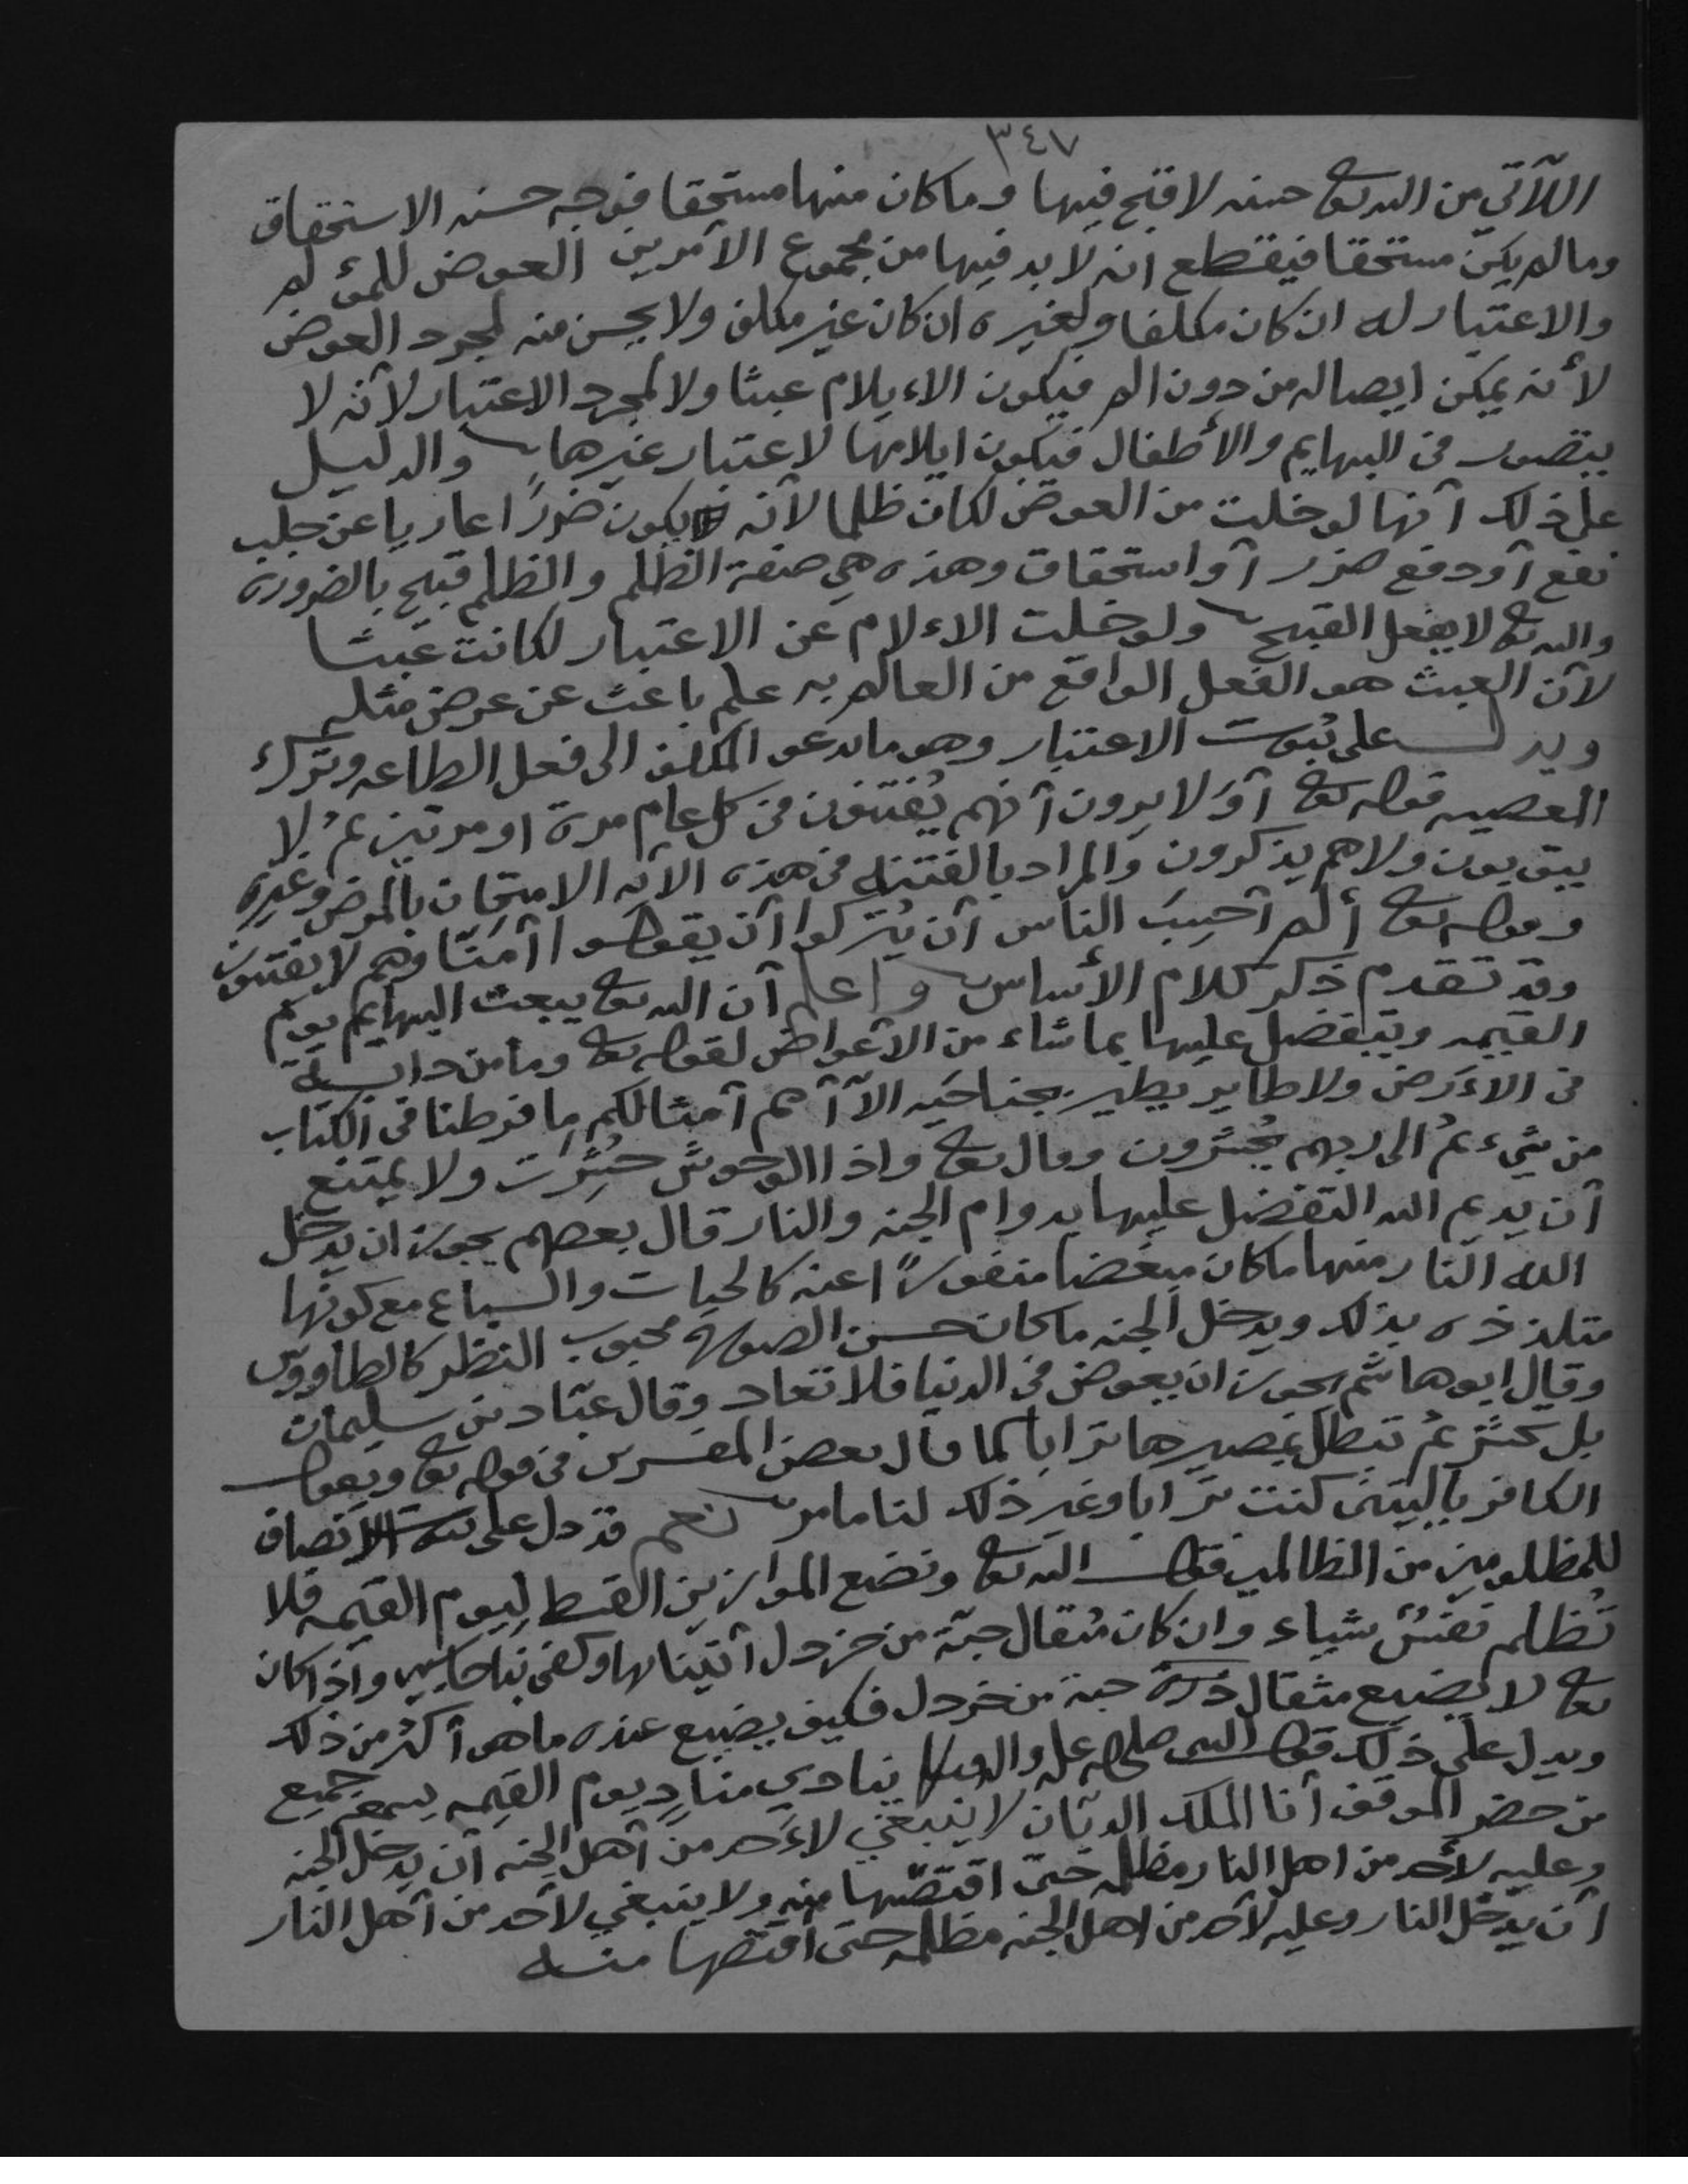 ٣٤٧
اللآتي من الله تعالى حسنه لا قبح فيها وما كان منها مستحقا فوجه حسنه الاستحقاق
ومالم يكن مستحقا فيقطع انه لا بد فيها من مجموع الأمرين العوض للمؤلم
والاعتبار له ان كان مكلفا ولغيره ان كان غير مكلف ولا يحسن منه لمجرد العوض
لأنه يمكن ايصاله من دون الم فيكون الاءيلام عبثا ولا لمجرد الاعتبار لأنه لا
يتصور في البهايم والأطفال فيكون ايلامها لاعتبار غيرها والدليل
على ذلك أنها لو خلت من العوض لكان ظلما لأنه يكون ضررًا عاريا عن جلب
نفع أو دفع ضرر أو استحقاق وهذه هي صفة الظلم والظلم قبيح بالضروره
والله تعالى لا يفعل القبيح ولو خلت الاءلام عن الاعتبار لكانت عبثا
لأن العبث هو الفعل الواقع من العالم به علم باعث عن عوض مثله
ويدل على ثبوت الاعتبار وهو ما يدعو المكلف الى فعل الطاعه وترك
المعصيه قوله تعالى أوَلا يرون أنهم يُفتنون في كل عام مرة او مرتين ثمُ لا
يتوبون ولا هم يذكرون والمراد بالفتنه في هذه الآيه الامتحان بالمرض وغيره
وقوله تعالى ألم أحسِبَ الناس أن يُتركوا أن يقولوا آمنّا وهم لا يفتنون
وقد تقدم ذكر كلام الأساس واعلم أن الله تعالى يبعث البهايم يوم
القيمه ويتفضل عليها بما شاء من الأعواض لقوله تعالى وما من دابة
في الاءَرض ولا طاير يطير بجناحَيه الآ أمم أمثالكم ما فرطنا في الكتاب
من شيء ثمُ الى ربهم يُحشرون وقال تعالى واذا الوحوش حُشِرَت ولا يمتنع
أن يديم الله التفضل عليها بدوام الجنه والنار قال بعضهم يجوز ان يدخل
الله النار منها ما كان مبغضا منفورًا عنه كالحيات والسباع مع كونها
متلذذه بذلك ويدخل الجنه ما كان حسن الصوره محبوب النظر كالطاووس
وقال ابو هاشم يجوز ان يعوض في الدنيا فلا تعاد وقال عبّاد بن سليمان
بل تحشر ثمُ تبطل بمصيرها ترابا كما قال بعض المفسرين في قوله تعالى ويقول
الكافر ياليتنى كنت ترابا وغير ذلك لنا ما مر نعم قد دل على الانصاف
للمظلومين من الظالمين قول الله تعالى ونضع الموازين القسط ليوم القيمه فلا
تُظلم نفسٌ شياء وان كان مثقال حبّة من خردل أتينا بها وكفى بنا حاسبين واذا كان
تعالى لا يضيع مثقال ذرة حبة من خردل فكيف يضيع عنده ما هو أكثر من ذلك
ويدل على ذلك قول النبى صلى الله عليه واله وسلم ينادي منادٍ يوم القيمه يسمع جميع
من حضر الموقف أنا الملك الديّان لا ينبغي لاءَحد من أهل الجنه أن يدخل الجنه
وعليه لأحد من اهل النار مظلمه حتى اقتصّها منه ولا ينبغي لأحد من أهل النار
أن يدخل النار وعليه لأحد من اهل الجنه مظلمه حتى أقتصها منه